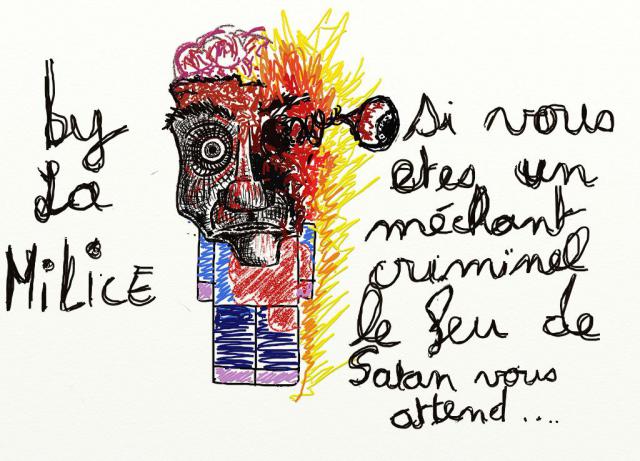 by
La
MiLiCE
si vous
etes un
méchant
criminel
le feu de
Satan vous
attend....